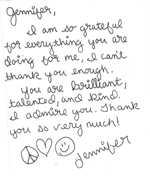 Jennifer,
I am so grateful
for everything you are
doing for me, I can't
thank you enough.
You are brilliant,
talented, and kind.
I admire you. Thank
you so very much!
Jennifer